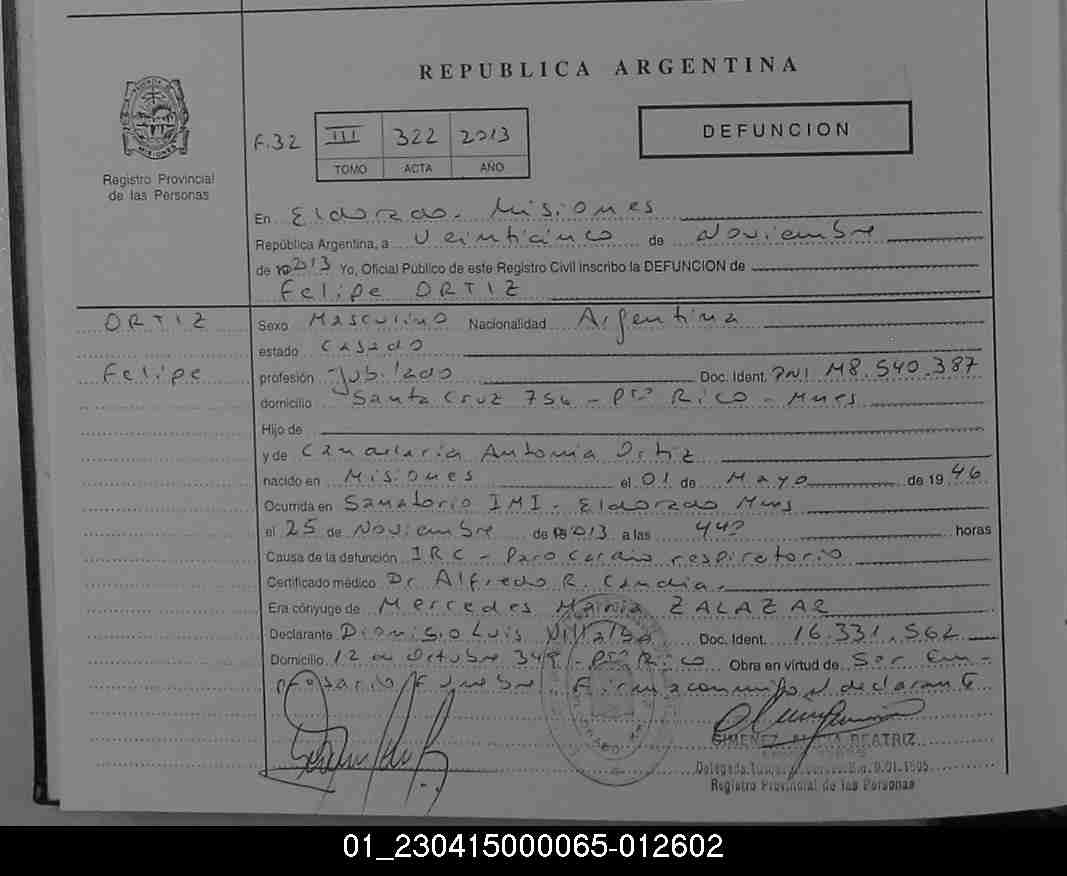 REPUBLICA ARGENTINA
Registro Provincial
de las Personas
F.32 III 322 2013
TOMO ACTA AÑO
DEFUNCION
En Eldorado. Misiones
República Argentina, a Veinticinco de Noviembre
de 2013 Yo, Oficial Público de este Registro Civil inscribo la DEFUNCION de
Felipe ORTIZ
ORTIZ
Felipe
Sexo Masculino Nacionalidad Argentina
estado Casado
profesión Jubilado Doc. Ident. DNI M8.540.387
domicilio Santa Cruz 754 - Pto Rico - Mnes
Hijo de
y de Candelaria Antonia Ortiz
nacido en Misiones el 01 de Mayo de 1946
Ocurrida en Sanatorio IMI - Eldorado Mnes
el 25 de Noviembre de 2013 a las 440 horas
Causa de la defunción IRC - Paro Cardio respiratorio
Certificado médico Dr. Alfredo R. Candia.
Era cónyuge de Mercedes Maria ZALAZAR
Declarante Dionisio Luis Villalba Doc. Ident. 16.331.562
Domicilio 12 de Octubre 349 - Pto Rico Obra en virtud de Ser Em-
presario Funebre. Firma conmigo el declarante
GIMENEZ BEATRIZ
Registro Provincial de las Personas
01_230415000065-012602